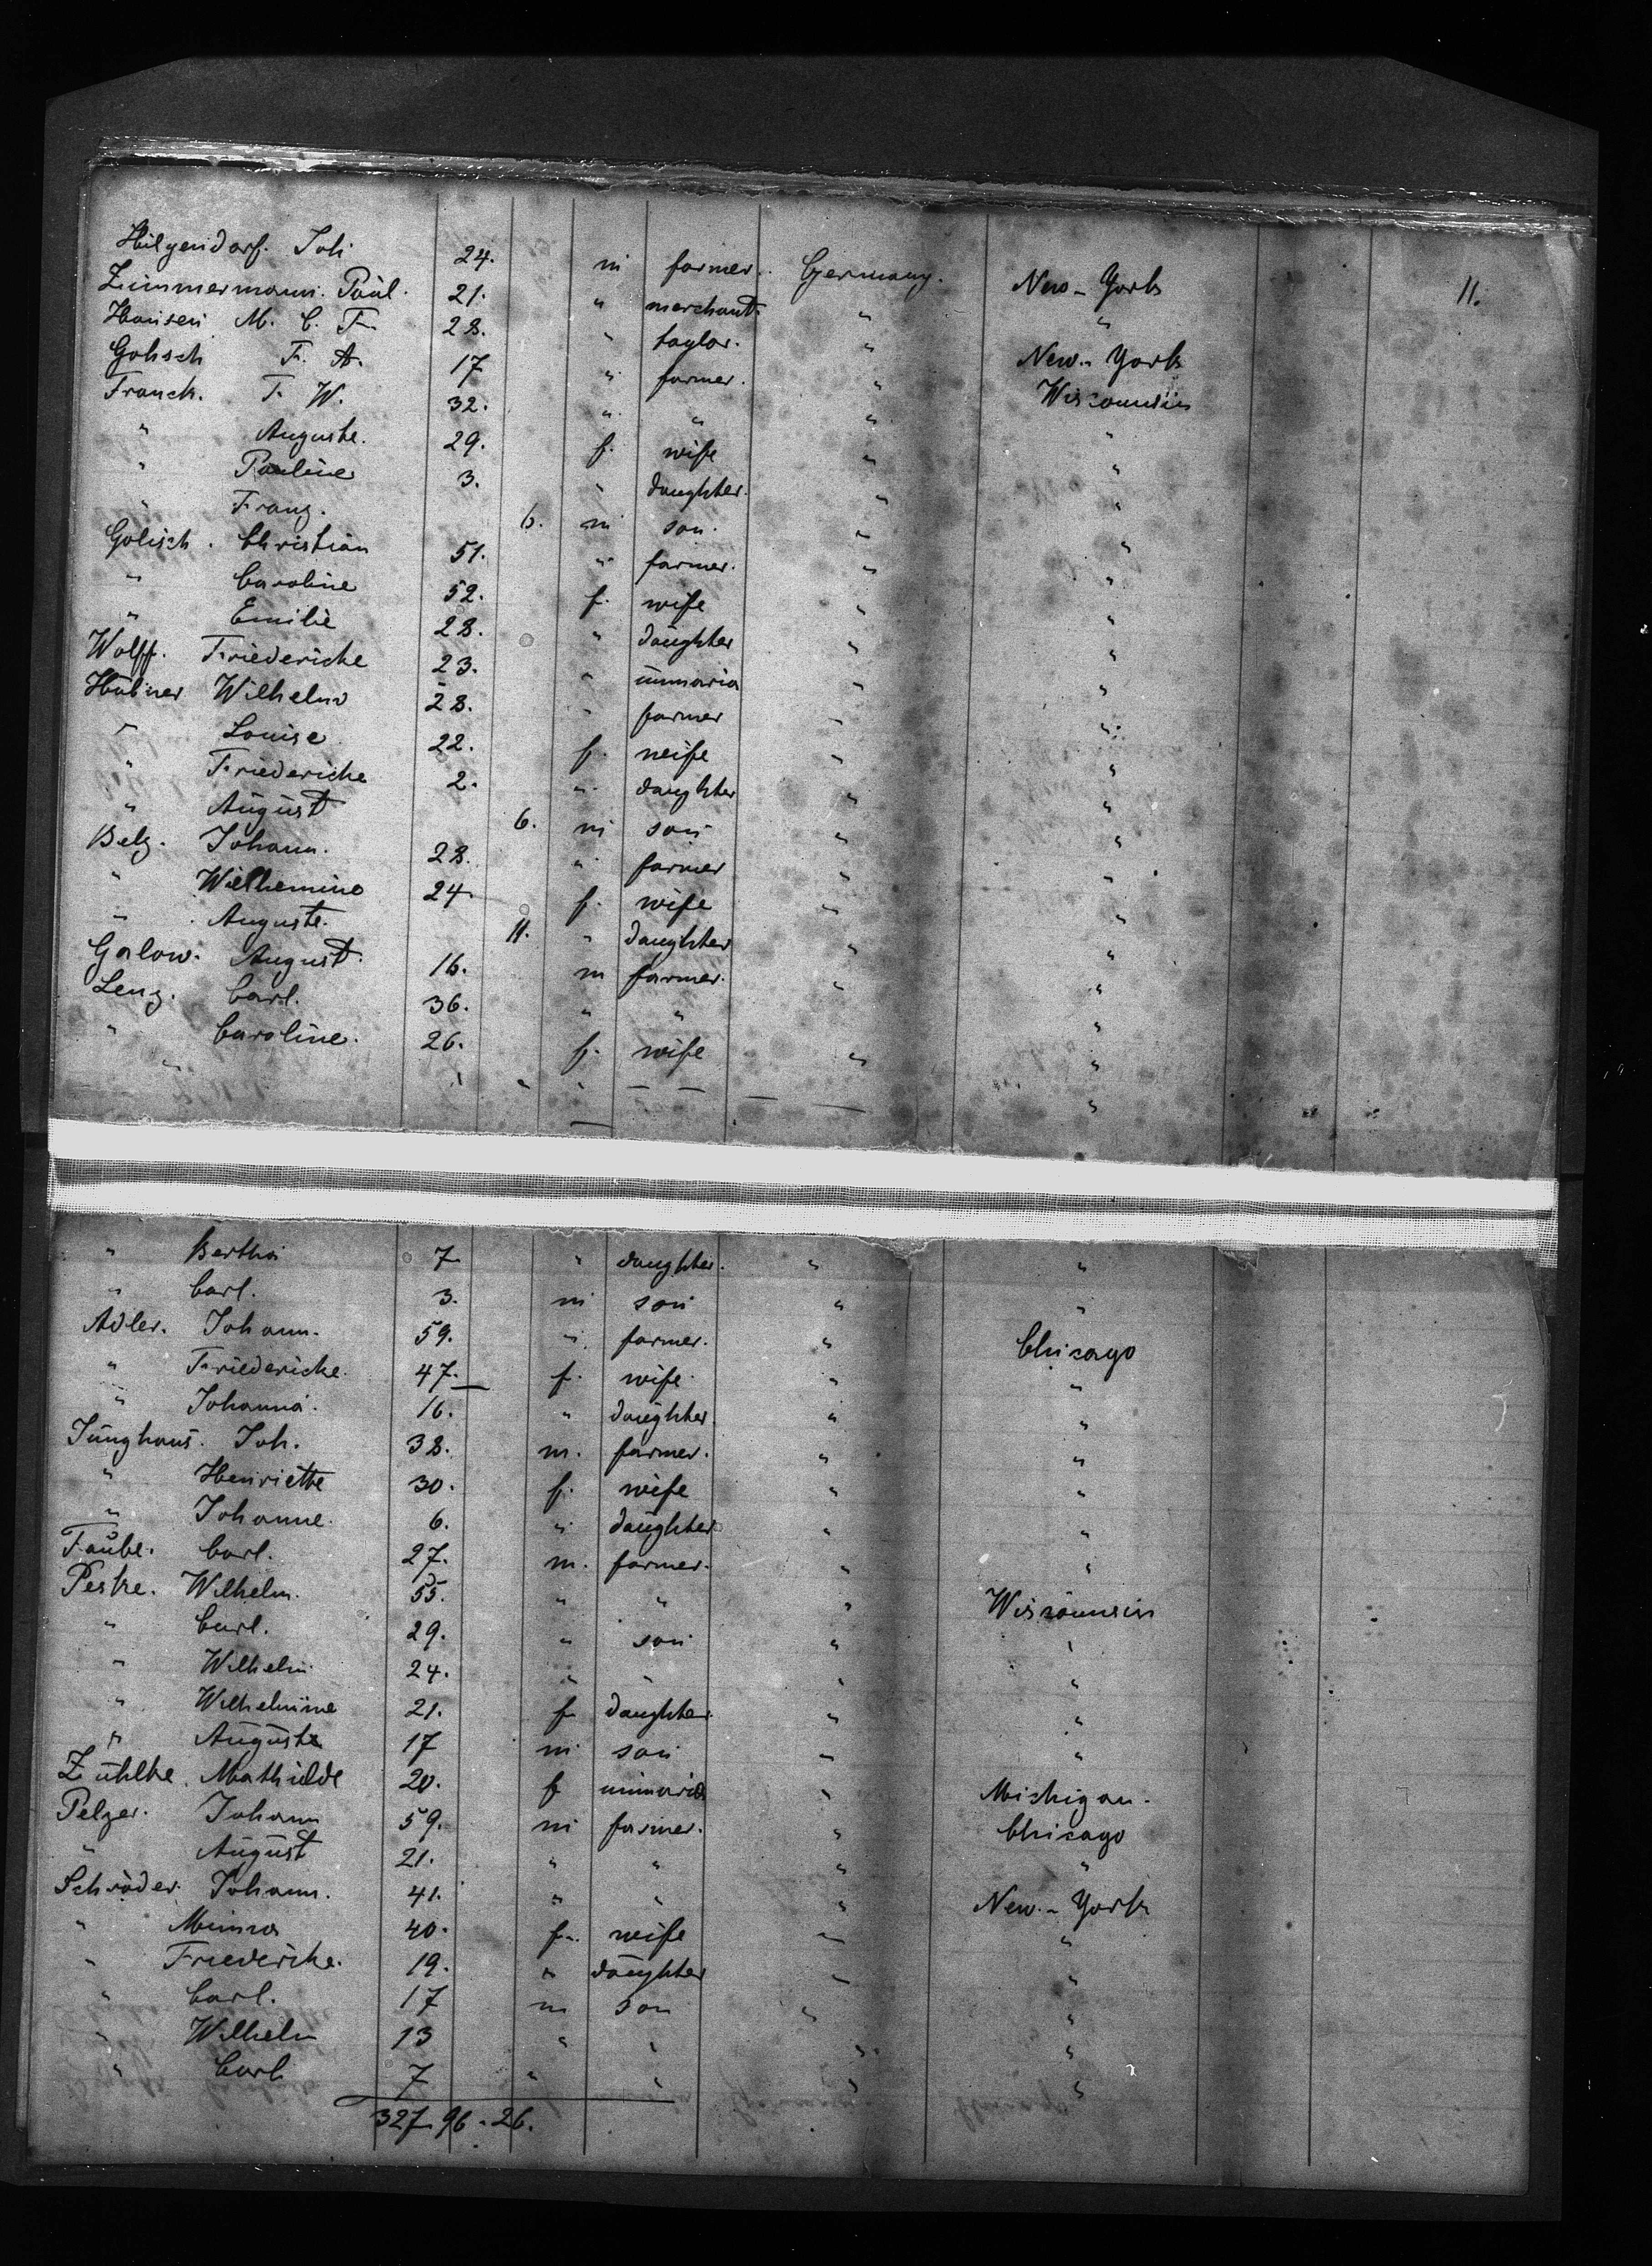 Hilgendorf. Joh 24. m farmer. Germany. New-York 11.
Zimmermann. Paul. 21. " merchant. " "
Hansen M. C. F. 28. " taylor. " New-York
Gohsch F. A. 17 " farmer. " Wisconnsin
Franck. F. W. 32. " " " "
" Auguste. 29. f. wife " "
" Pauline 3. " daughter. " "
" Franz. 6. m son. " "
Golisch. Christian 51. " farmer. " "
" Caroline 52. f. wife " "
" Emilie 28. " daughter " "
Wolff. Friedericke 23. " " "
Hübner Wilhelm 28. " farmer " "
" Louise 22. f. weife " "
" Friedericke 2. " daughter " "
" August 6. m son " "
Belz. Johann. 28. " farmer " "
" Wilhemine 24. f. wife " "
" Auguste. 11. " daughter " "
Galow. August. 16. m farmer. " "
Lenz. Carl. 36. " " "
" Caroline. 26. f. wife " "
" Bertha 7 " daughter. " "
" Carl. 3. m son " "
Adler. Johann. 59. " farmer. " Chicago
" Friedericke. 47. f. wife. " "
" Johanna. 16. " daughter. " "
Junghans. Joh. 38. m. farmer. " "
" Henriette 30. f. weife " "
" Johanne. 6. " daughter " "
Taube. Carl. 27. m. farmer. " "
Peske. Wilhelm. 55. " " " Wisconnsin
" Carl. 29. " son " "
" Wilhelm 24. " " " "
" Wilhelmine 21. f daughter. " "
" Auguste 17 m son " "
Zühlke. Mathilde 20. f " Michigan.
Pelzer. Johann 59. m farmer. " Chicago
" August 21. " " " "
Schröder. Johann. 41. " " " New-York
" Minna 40. f. weife " "
" Friedericke. 19. " daughter " "
" Carl. 17 m son " "
" Wilhelm 13 " " " "
" Carl 7 " " " "
327. 96. 26.